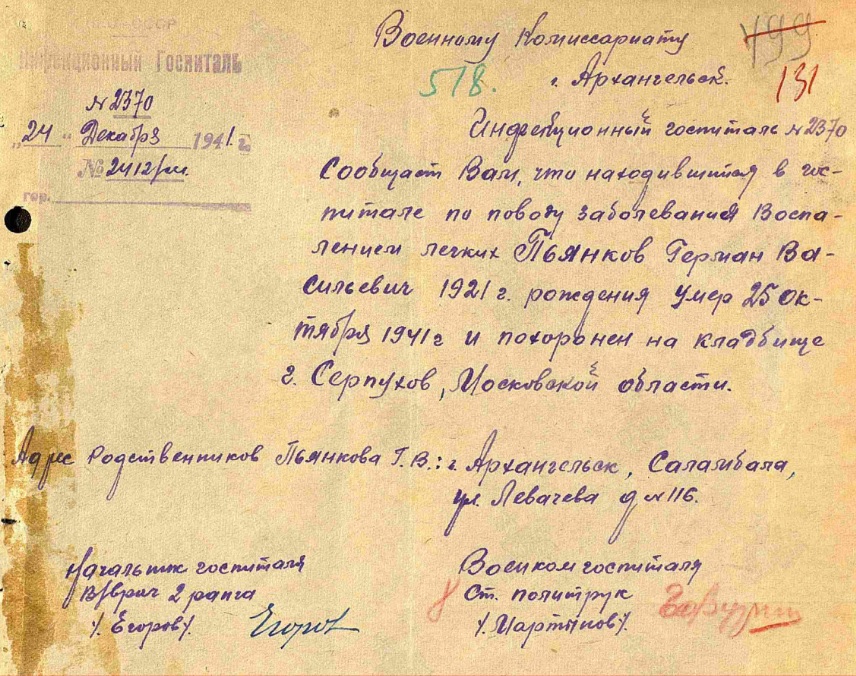 НКО-СССР
Инфекционный Госпиталь
N 2370
„24“ Декабря 1941 г.
№ 2412/м.
гор.
Военному Комиссариату
г. Архангельск.
499
518.
131
Инфекционный госпиталь N 2370
Сообщает Вам, что находившийся в гос-
питале по поводу заболевания Воспа-
лением легких Пьянков Герман Ва-
сильевич 1921 г. рождения умер 25 Ок-
тября 1941 г и похоронен на кладбище
г. Серпухов, Московской области.
Адрес Родственников Пьянкова Г.В.: г. Архангельск, Саламбала,
ул. Левачева д N 116.
Начальник госпиталя
В/врач 2 ранга
/. Егоров/.
Егоров
Военком госпиталя
Ст. политрук
/. Мартынов/.